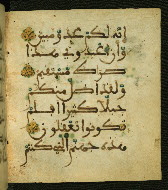 إنه لكم عدو مبين
وأن اعبدوني هذا
صراط مستقيم
ولقد أضل منكم
جبلا كثيرا أفلم
تكونوا تعقلون
هذه جهنم التي كنتم